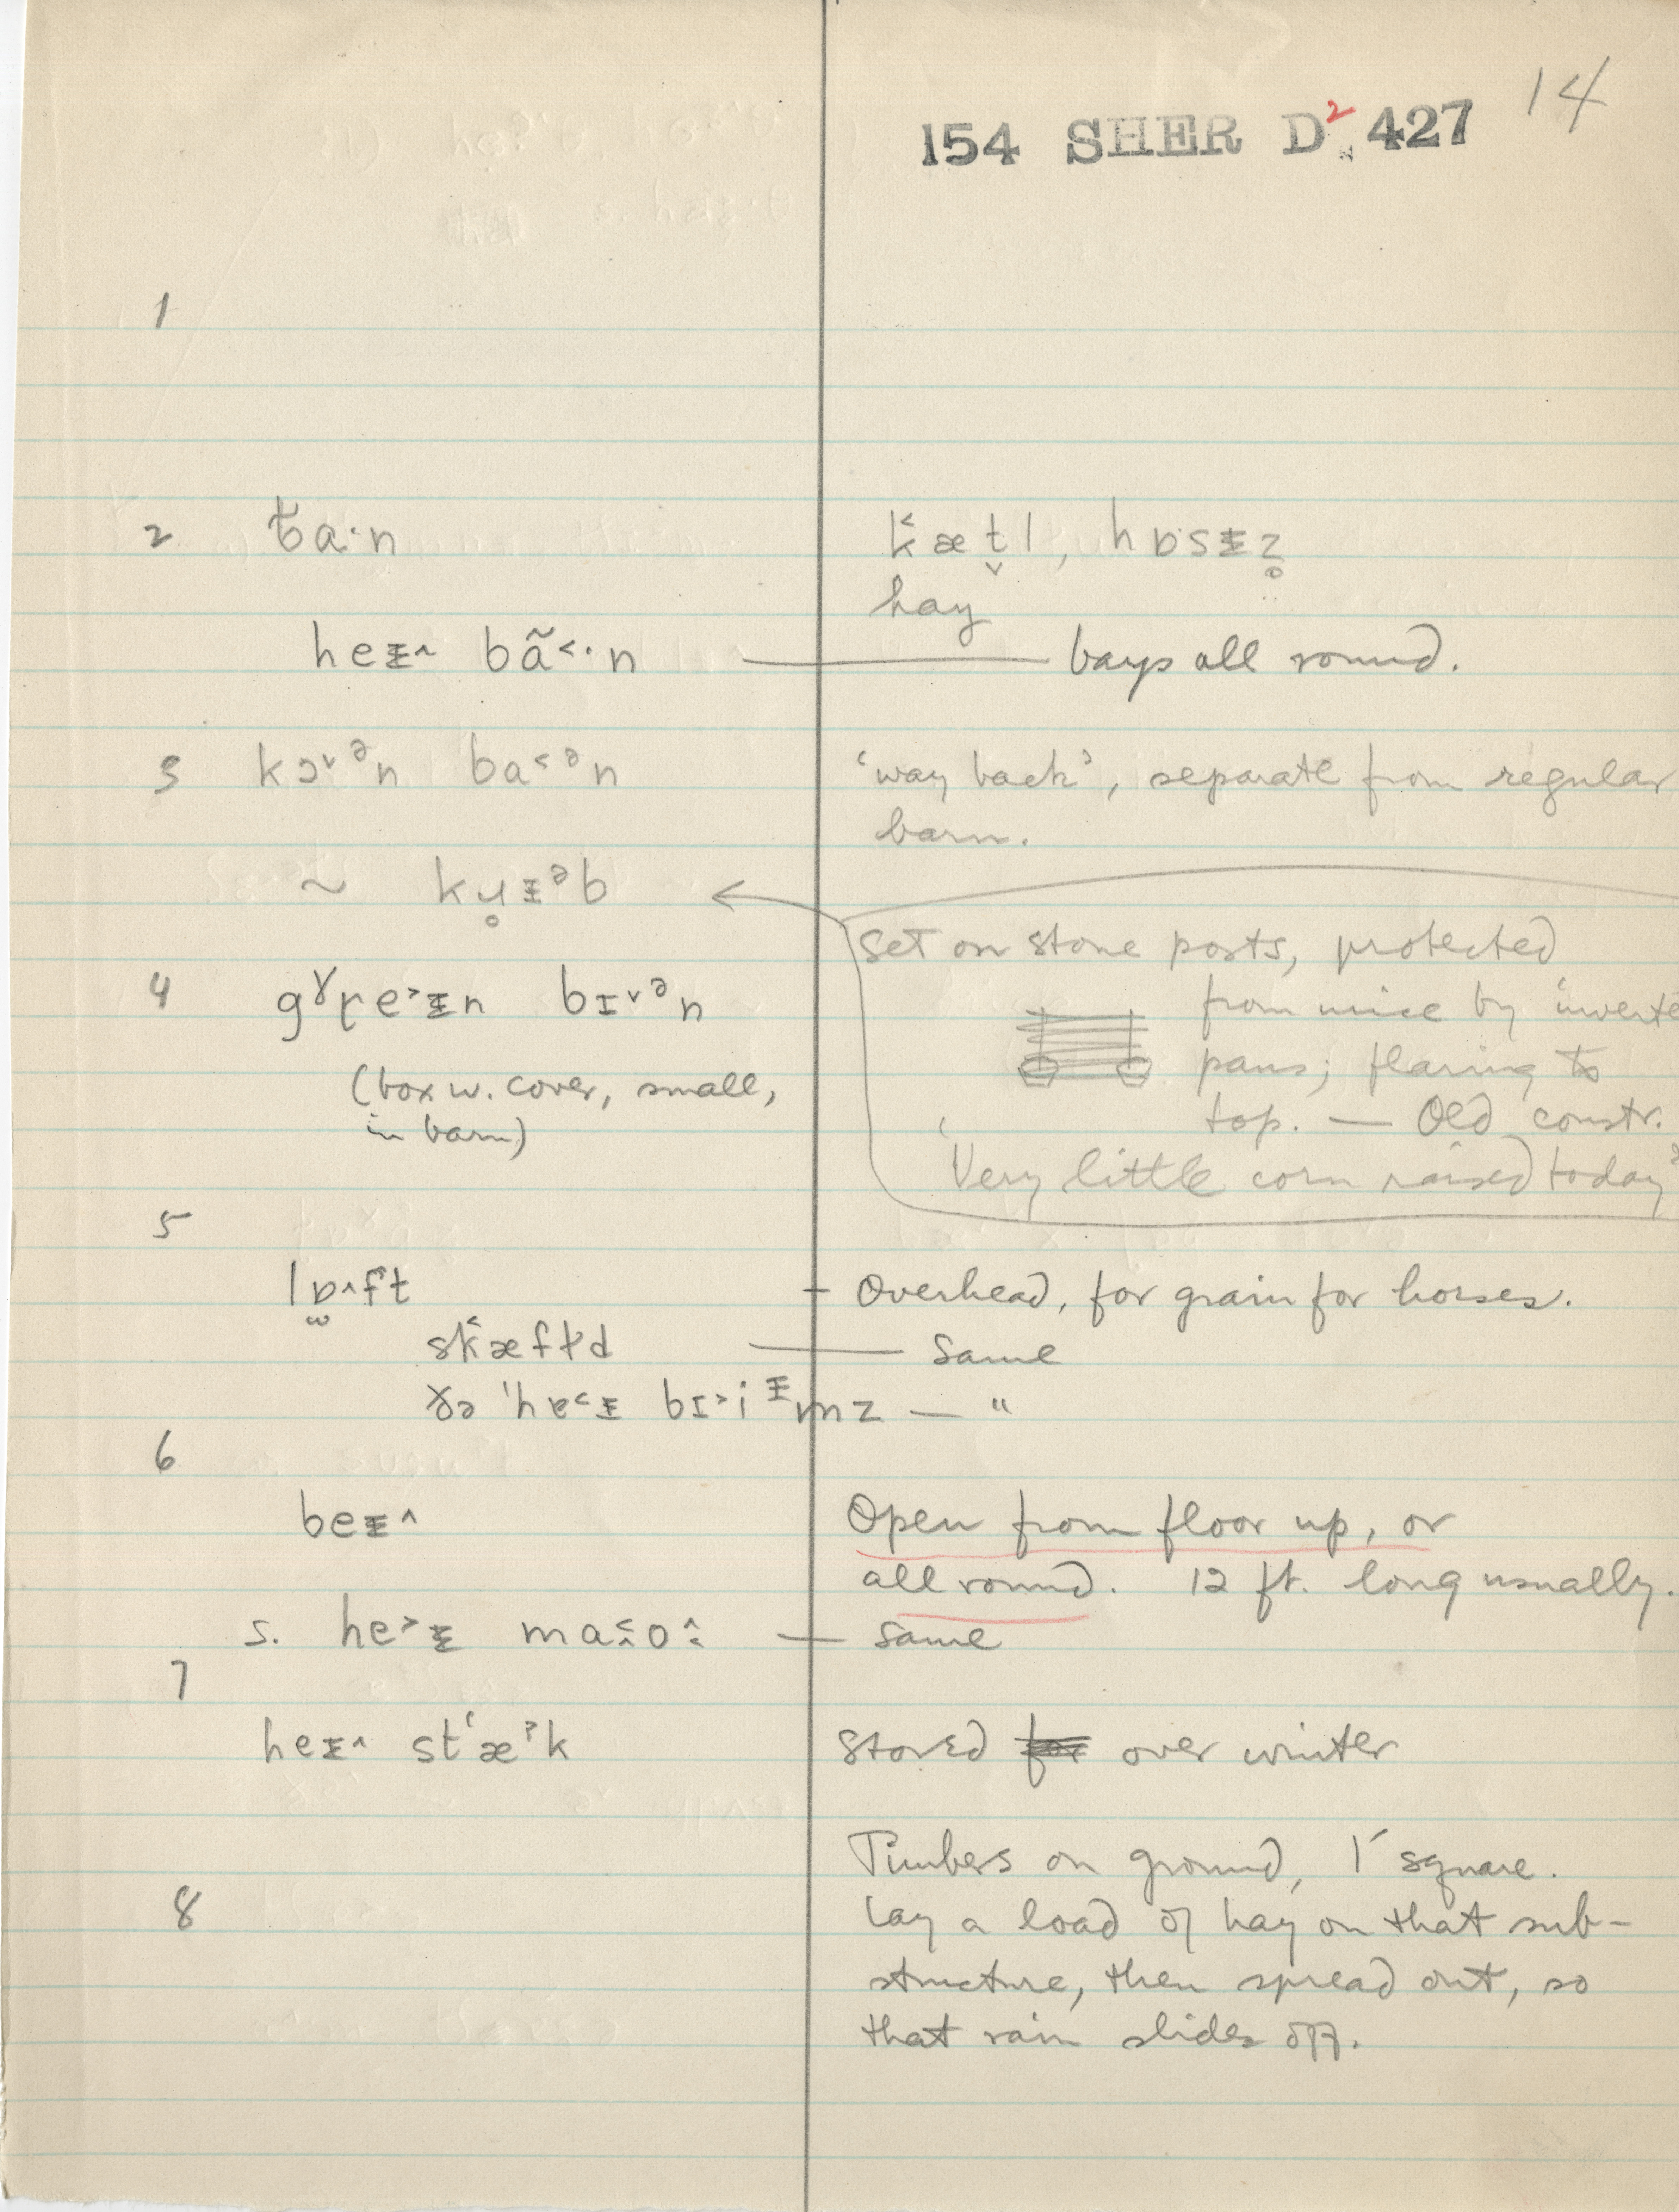 14
154 SHER D² 427
1
2 ba·n kæt̬l, hɒsɪz̥
hay
heɪ^ bã<·n — bays all round.
3 kɔ˅ᵊn ba<ᵊn 'way back', separate from regular
barn.
~ kɪᵊb
Set on stone posts, protected
4 bɪ˅ᵊn from mice by
pans; flaring to
(box w. cover, small,
in barn) top. — Old constr.
'Very little corn raised today'
5
lɒ^ft — Overhead, for grain for horses.
skæfɫd — Same
mz — "
6
beɪ^ Open from floor up, or
all round. 12 ft. long usually.
s. he>ɪ — Same
7
heɪ^ st‘æˀk Stored over winter
Timbers on ground, 1' square.
8 Lay a load of hay on that sub-
structure, then spread out, so
that rain slides off.